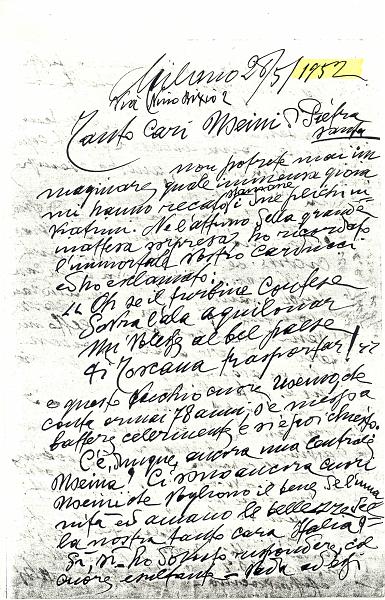 Milano 28/5/1952
Via Nino Bixio 2
Tanto cari Meini di Pietra
santa
non potrete mai im
maginare quale immensa gioia
mi hanno recato i due plichi in
viatimi. Nell'attimo della grande
inattesa sorpresa, ho ricordato
l'immortale vostro Carducci
ed ho esclamato:
"Oh se il turbine
Sovra l'ala aquilonar
Mi volesse al bel paese
di Toscana trasportar!"
e questo vecchio cuore che
conta ormai 78 anni, s'è messo a
battere celermente e si è poi chiesto.
C'è, dunque, ancora una
Meina? Ci sono ancora cuori
che vogliono il bene dell'uma
nità ed amano le bellezze del
la nostra tanto cara Italia?
Sì, sì - ho dovuto rispondere, col
cuore esultante =